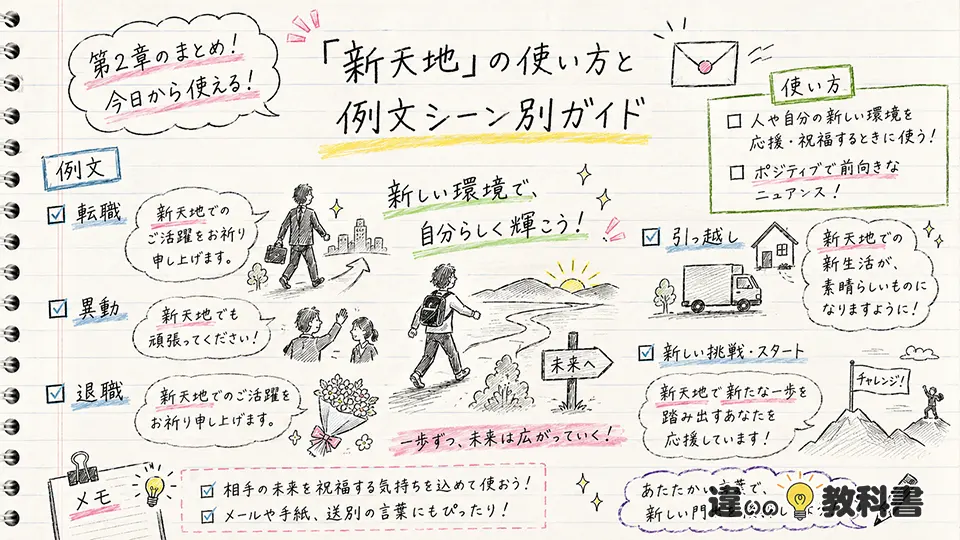 第2章のまとめ!
今日から使える!
「新天地」の使い方と
例文シーン別ガイド
使い方
人や自分の新しい環境を
応援・祝福するときに使う!
ポジティブで前向きな
ニュアンス!
例文
転職
新天地での
ご活躍をお祈り
申し上げます。
異動
新天地でも
頑張ってください!
退職
新天地でのご活躍を
お祈り申し上げます。
新しい環境で、
自分らしく輝こう!
未来へ
一歩ずつ、未来は広がっていく!
引っ越し
新天地での
新生活が、
素晴らしいものに
なりますように!
新しい挑戦・スタート
新天地で新たな一歩を
踏み出すあなたを
応援しています!
チャレンジ!
メモ
相手の未来を祝福する気持ちを込めて使おう!
メールや手紙、送別の言葉にもぴったり!
あたたかい言葉で、
新しい門
違いの教科書